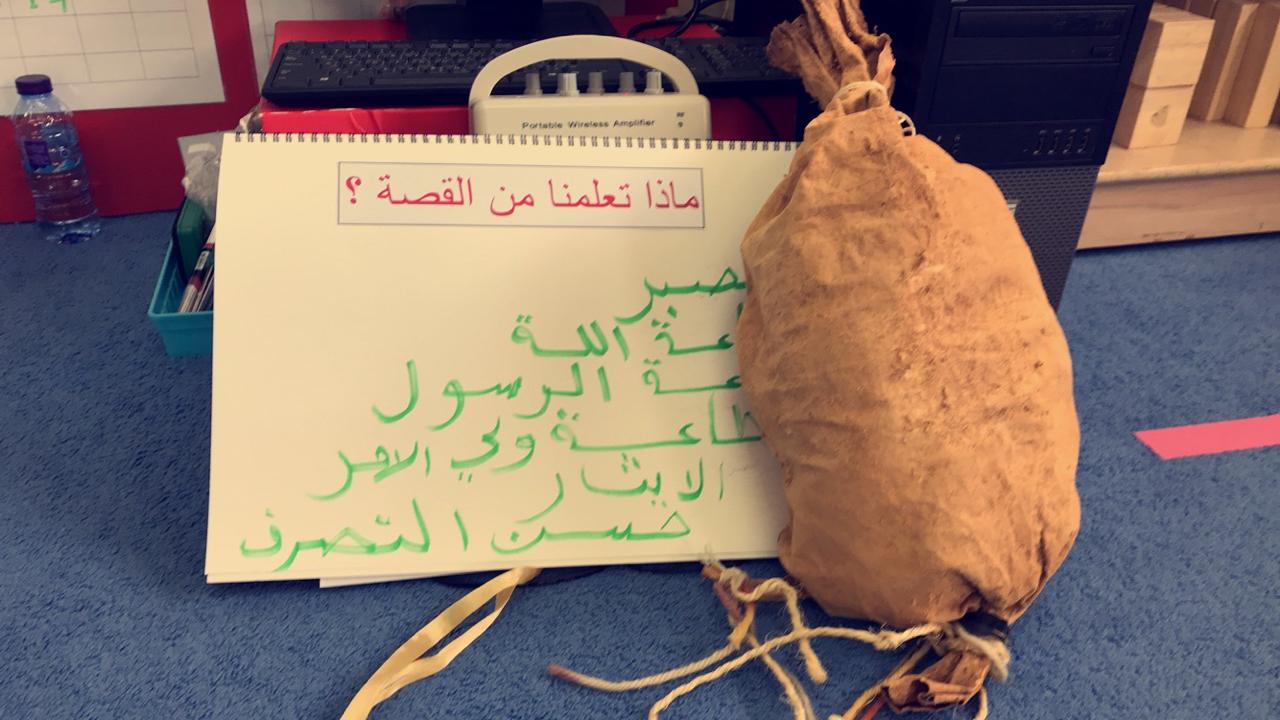 Portable Wireless Amplifier
ماذا تعلمنا من القصة ؟
صبر
عة اللة
عة الرسول
طاعة ولي الامر
الايثار
حسن التصرف